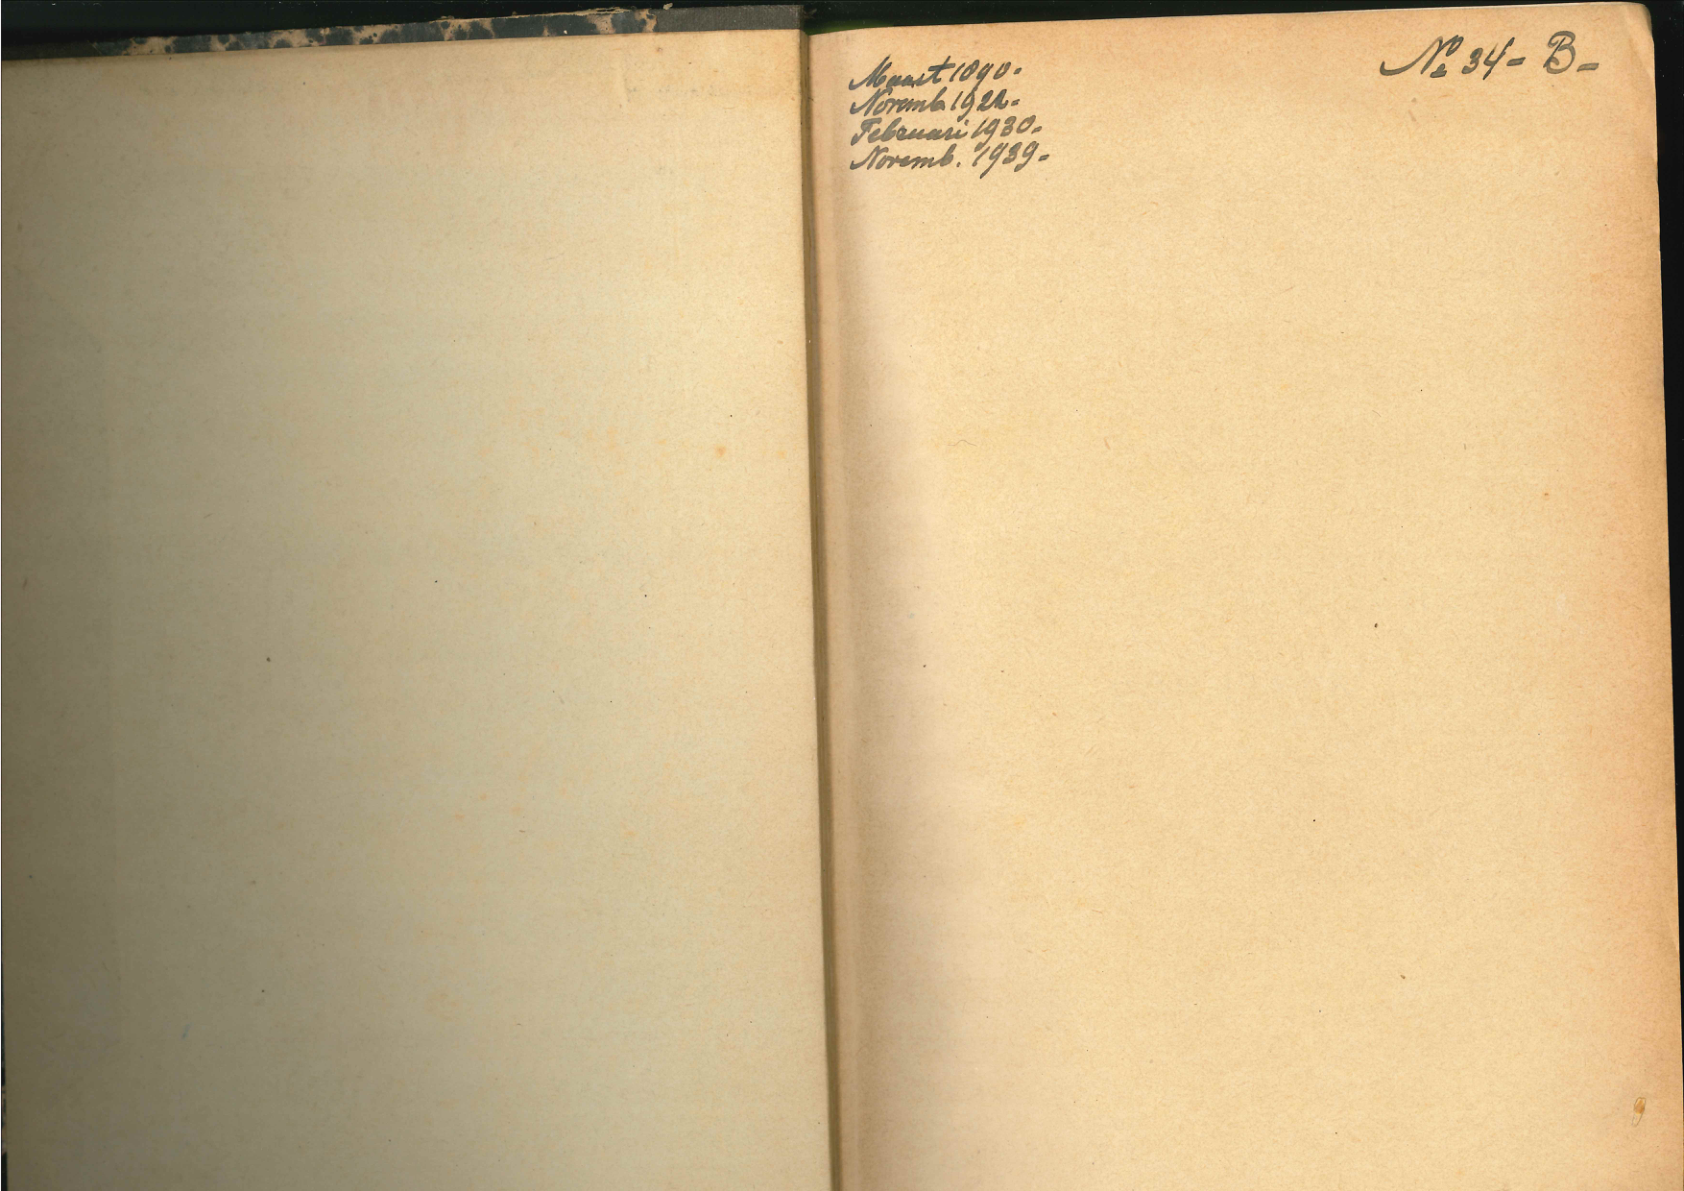 Maart 1890-
Novemb 1921-
Februari 1930-
Novemb. 1939-
No 34- B-